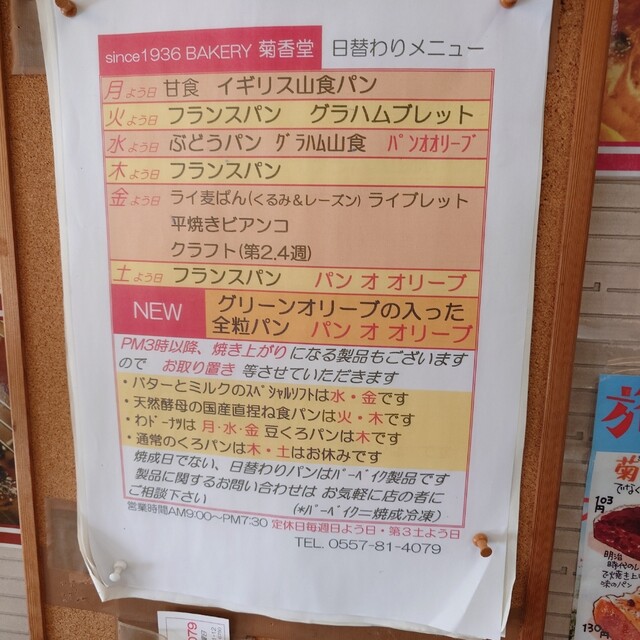 since1936 BAKERY 菊香堂 日替わりメニュー
月よう日 甘食 イギリス山食パン
火よう日 フランスパン グラハムブレット
水よう日 ぶどうパン グラハム山食 パンオオリーブ
木よう日 フランスパン
金よう日 ライ麦ぱん(くるみ&レーズン) ライブレット
平焼きビアンコ
クラフト(第2.4週)
土よう日 フランスパン パン オ オリーブ
NEW グリーンオリーブの入った
全粒パン パン オ オリーブ
PM3時以降、焼き上がりになる製品もございます
ので お取り置き 等させていただきます
・バターとミルクのスペシャルソフトは水・金です
・天然酵母の国産直捏ね食パンは火・木です
・わドーナツは 月・水・金 豆くろパンは木です
・通常のくろパンは木・土はお休みです
焼成日でない、日替わりパンはパーベイク製品です
製品に関するお問い合わせは お気軽に店の者に
ご相談下さい (*パーベイク=焼成冷凍)
営業時間AM9:00～PM7:30 定休日毎週日よう日・第3土よう日
TEL. 0557-81-4079
菊
103
円
明治
時代のレ
で焼き上
味のパン
130円